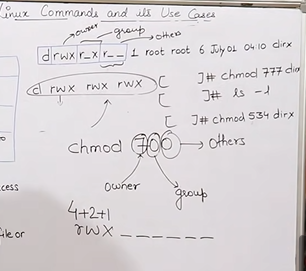 Linux Commands and its Use Cases
owner
group
others
drwxr_xr__ 1 root root 6 July 01 04:10 dirx
d rwx rwx rwx
[ ]# chmod 777 dirx
[ ]# ls -l
[ ]# chmod 534 dirx
chmod 700 → Others
owner
group
4+2+1
rwx ______
cess
file or